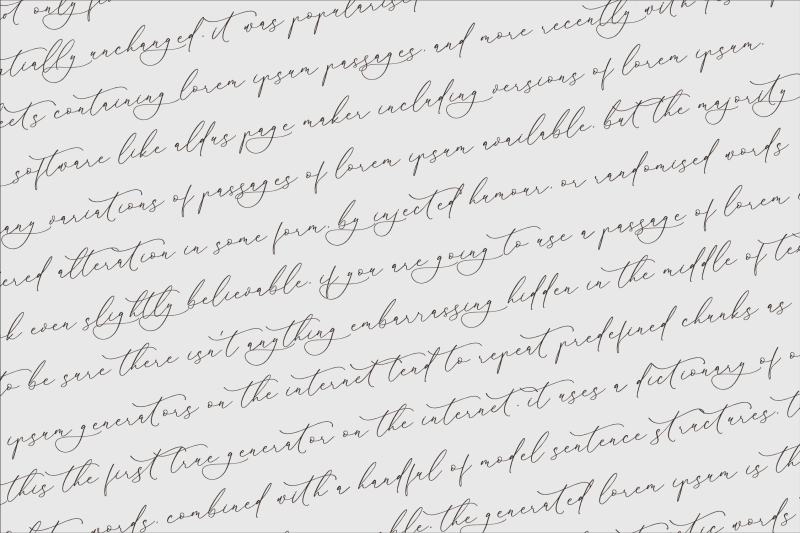 ot only fi
ntially unchanged. it was popularised
eets containing lorem ipsum passages. and more recently with
software like aldus page maker including versions of lorem ipsum.
any variations of passages of lorem ipsum available. but the majority
ered alteration in some form. by injected humour. or randomised words
k even slightly believable. if you are going to use a passage of lorem
to be sure there isn't anything embarrassing hidden in the middle of te
ipsum generators on the internet tend to repeat predefined chunks as
this the first true generator on the internet. it uses a dictionary of o
words. combined with a handful of model sentence structures. t
ble. the generated lorem ipsum is th
tic words